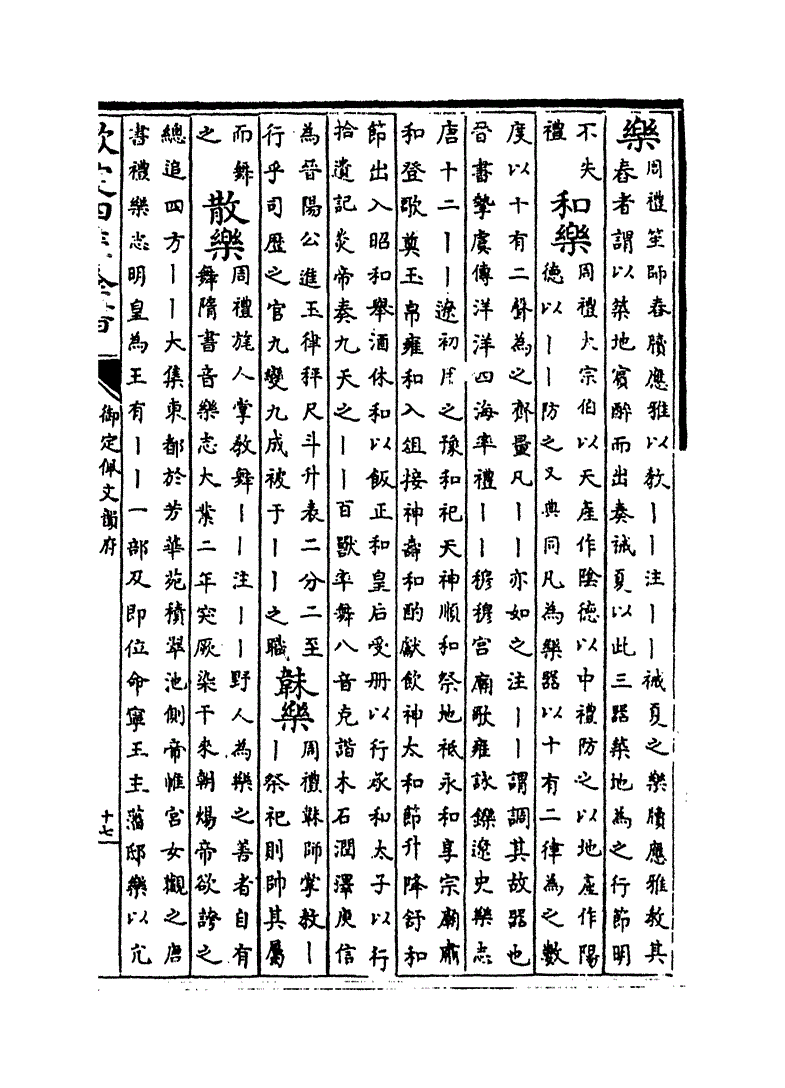 樂 周禮笙師舂牘應雅以教丨丨注丨丨祴夏之樂牘應雅教其
舂者謂以築地賓醉而出奏祴夏以此三器築地為之行節明
不失
禮
和樂 周禮大宗伯以天產作陰德以中禮防之以地產作陽
德以丨丨防之又典同凡為樂器以十有二律為之數
度以十有二聲為之齊量凡丨丨亦如之注丨丨謂調其故器也
晉書摯虞傳洋洋四海率禮丨丨穆穆宮廟歌雍詠鑠遼史樂志
唐十二丨丨遼初用之豫和祀天神順和祭地祇永和享宗廟肅
和登歌奠玉帛雍和入俎接神壽和酌獻飲神太和節升降舒和
節出入昭和舉酒休和以飯正和皇后受冊以行承和太子以行
拾遺記炎帝奏九天之丨丨百獸率舞八音克諧木石潤澤庾信
為晉陽公進玉律秤尺斗升表二分二至
行乎司歷之官九變九成被于丨丨之職
韎樂 周禮韎師掌教丨
丨祭祀則帥其屬
而舞
之
散樂 周禮旄人掌教舞丨丨注丨丨野人為樂之善者自有
舞隋書音樂志大業二年突厥染干來朝煬帝欲誇之
總追四方丨丨大集東都於芳華苑積翠池側帝帷宮女觀之唐
書禮樂志明皇為王有丨丨一部及即位命寧王主藩邸樂以亢
欽定四庫全書
御定佩文韻府
十七